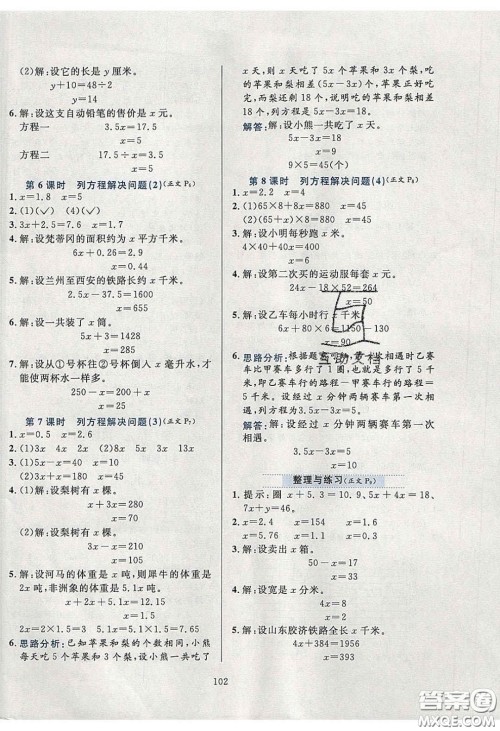 (2)解:设它的长是 y 厘米。
y+10=48÷2
y=14
6. 解:设这支自动铅笔的售价是 x 元。
方程一 3.5x=17.5
x=5
方程二 17.5÷x=3.5
x=5
第 6 课时 列方程解决问题(2)(正文 P₆)
1. x=1.8 x=5
2. (1)(√) (4)(√)
3. 3x+2.5=7.6 x=1.7
4. 解:设梵蒂冈的面积约为 x 平方千米。
6x+0.26=2.9
x=0.44
5. 解:设兰州至西安的铁路长约 x 千米。
2.5x-34=1655
x=675.6
6. 解:设一共装了 x 筒。
5x+3=1428
x=285
7. 解:设从①号杯往②号杯倒入 x 毫升水,才
能使两杯水一样多。
250-x=200+x
x=25
第 7 课时 列方程解决问题(3)(正文 P₇)
1. x=0.5 x=2.6
2. (1)3x (2)4x 8x 2x 13x
3. x=50 x=35
4. (1)解:设梨树有 x 棵。
x+3x=280
x=70
(2)解:设梨树有 x 棵。
3x-x=210
x=105
5. 解:设河马的体重是 x 吨,则犀牛的体重是
2x 吨,非洲象的体重是 5.1x 吨。
x+5.1x=9.15
x=1.5
2x=2×1.5=3 5.1x=5.1×1.5=7.65
6. 思路分析:已知苹果和梨的个数相同,小熊
每天吃 5 个苹果和 3 个梨,设小熊一共吃了
x 天,则一共吃了 5x 个苹果和 3x 个梨,吃
的苹果和梨相差 5x-3x 个。梨正好吃完,
苹果还剩 18 个,说明吃的苹果和梨相差
18 个,列方程为 5x-3x=18。
解答:解:设小熊一共吃了 x 天。
5x-3x=18
x=9
9×5=45(个)
第 8 课时 列方程解决问题(4)(正文 P₈)
1. x=2.2 x=4
2. (1)65×8+8x=880 x=45
(2)(65+x)×8=880 x=45
3. 解:设小明每秒跑 x 米。
4×40+4x=400
x=60
4. 解:设第二次买的运动服每套 x 元。
24x-18×52=264
x=50
5. 解:设乙车每小时行 x 千米。
6x+80×6=1150-130
x=90
整理与练习(正文 P₉)
1. 提示:圈 x+5.3=10.9、5x+4x=18、
7x+y=46。
2. x=2.4 x=154 x=1.8
3. 解:设卖出 x 箱。
5x=x+72
x=18
4. 解:设宽是 x 米。
5x=17
x=3.4
5. 解:设山东胶济铁路全长 x 千米。
4x+384=1956
x=393
102
答案圈
MXQE.COM